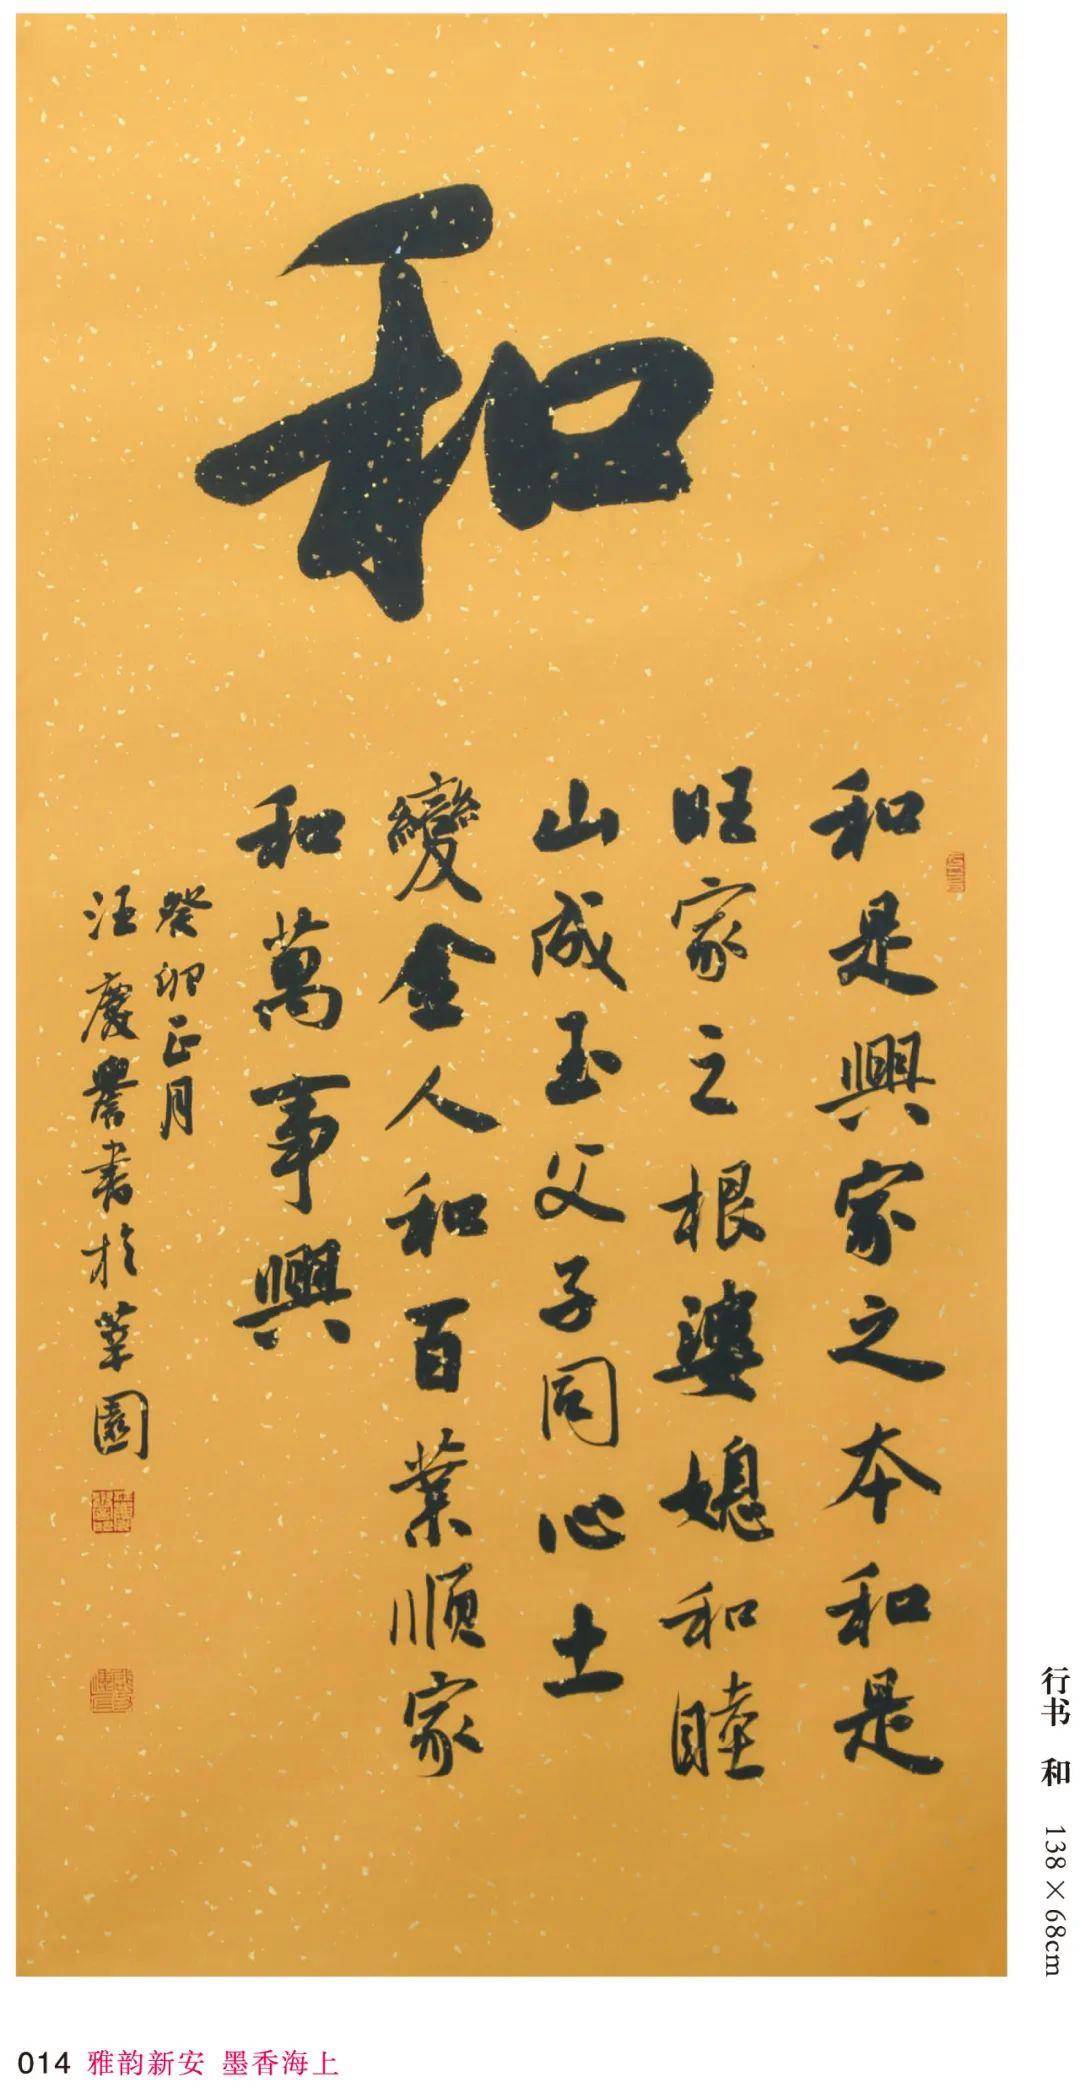 和
和是興家之本和是
旺家之根婆媳和睦
山成玉父子同心土
變金人和百業順家
和萬事興
癸卯正月
汪慶譽書於莘園
行书 和 138×68cm
014 雅韵新安 墨香海上